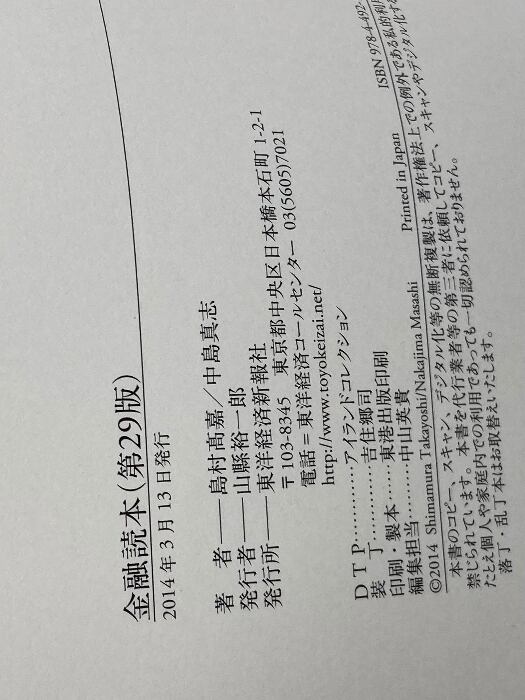 金融読本(第29版)
2014年3月13日発行
著 者――島村髙嘉／中島真志
発行者――山縣裕一郎
発行所――東洋経済新報社
〒103-8345 東京都中央区日本橋本石町1-2-1
電話＝東洋経済コールセンター 03(5605)7021
http://www.toyokeizai.net/
ＤＴＰ…………アイランドコレクション
装 丁…………吉住郷司
印刷・製本……東港出版印刷
編集担当………中山英貴
©2014 Shimamura Takayoshi/Nakajima Masashi Printed in Japan ISBN 978-4-492-
本書のコピー、スキャン、デジタル化等の無断複製は、著作権法上での例外である私的利用
禁じられています。本書を代行業者等の第三者に依頼してコピー、スキャンやデジタル化する
たとえ個人や家庭内での利用であっても一切認められておりません。
落丁・乱丁本はお取替えいたします。